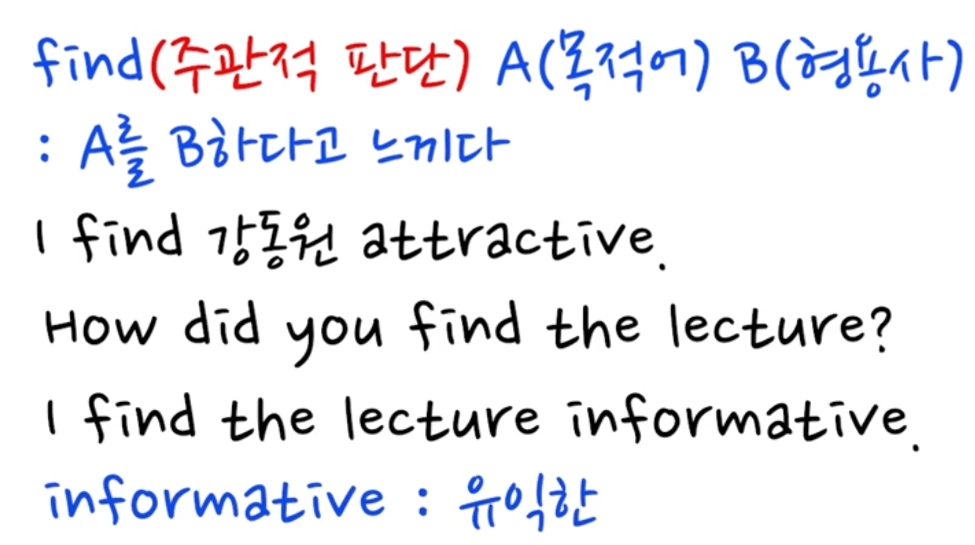 find(주관적 판단) A(목적어) B(형용사)
: A를 B하다고 느끼다
I find 강동원 attractive.
How did you find the lecture?
I find the lecture informative.
informative : 유익한